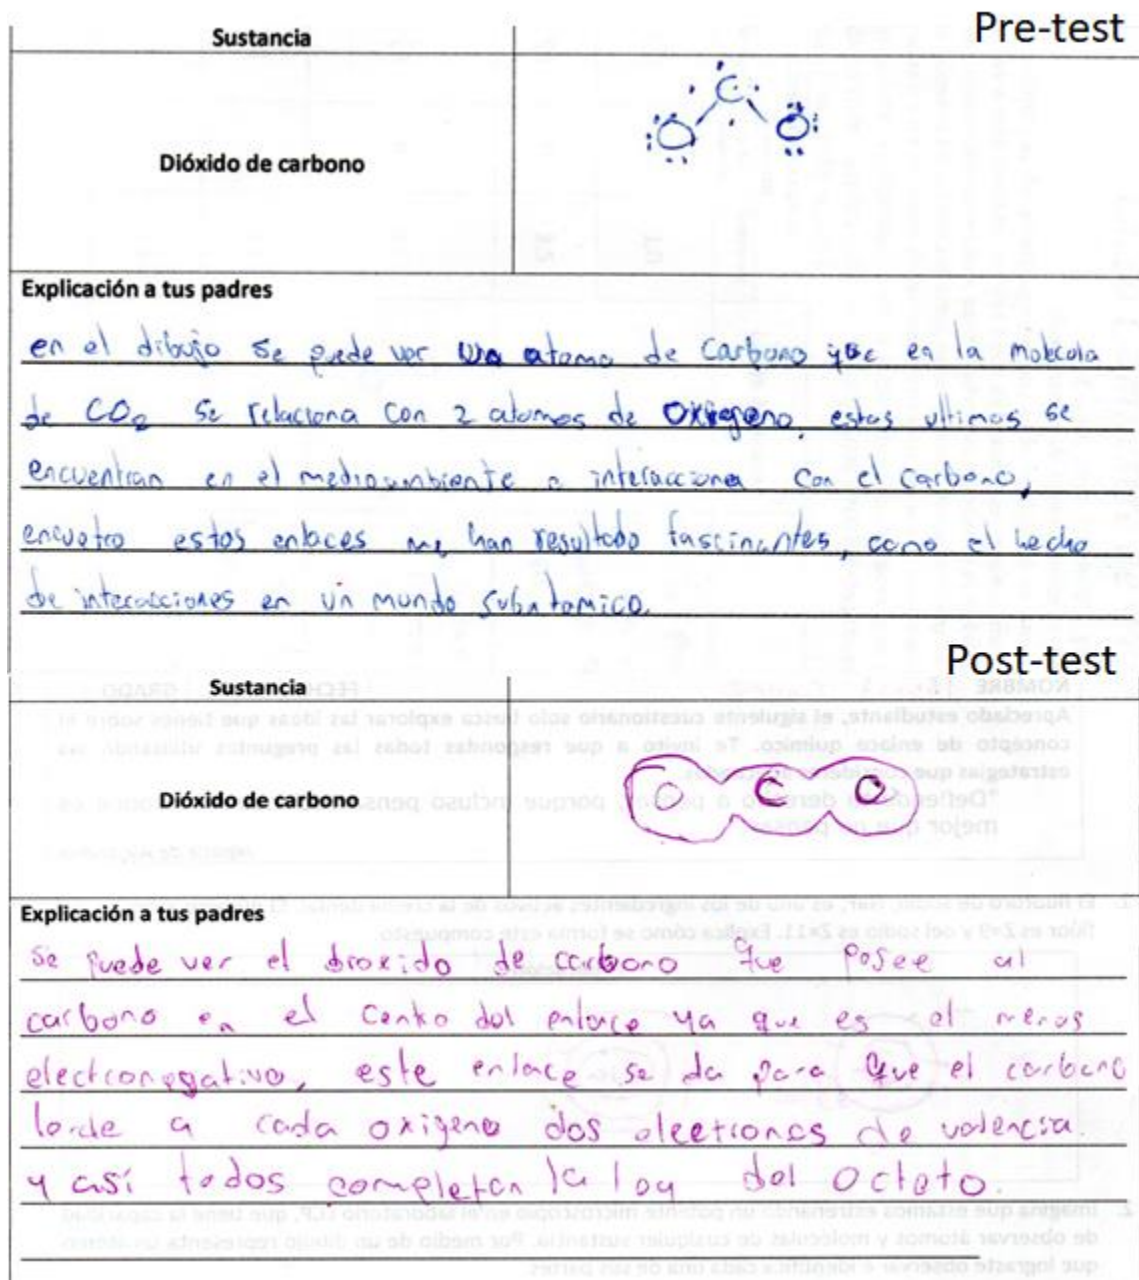 Pre-test
Sustancia
Dióxido de carbono
C
O O
Explicación a tus padres
en el dibujo se puede ver un atomo de carbono que en la molecola
de CO2 se relaciona con 2 atomos de oxigeno, estos ultimos se
encuentran en el medioambiente e interacciona con el carbono,
encuetro estos enlaces me han resultado fascinantes, como el hecho
de interacciones en un mundo subatomico.
Post-test
Sustancia
Dióxido de carbono
O C O
Explicación a tus padres
se puede ver el dioxido de carbono que posee al
carbono en el centro del enlace ya que es el menos
electronegativo, este enlace se da para que el carbono
a cada oxigeno dos electrones de valencia
y así todos completan la ley del octeto.